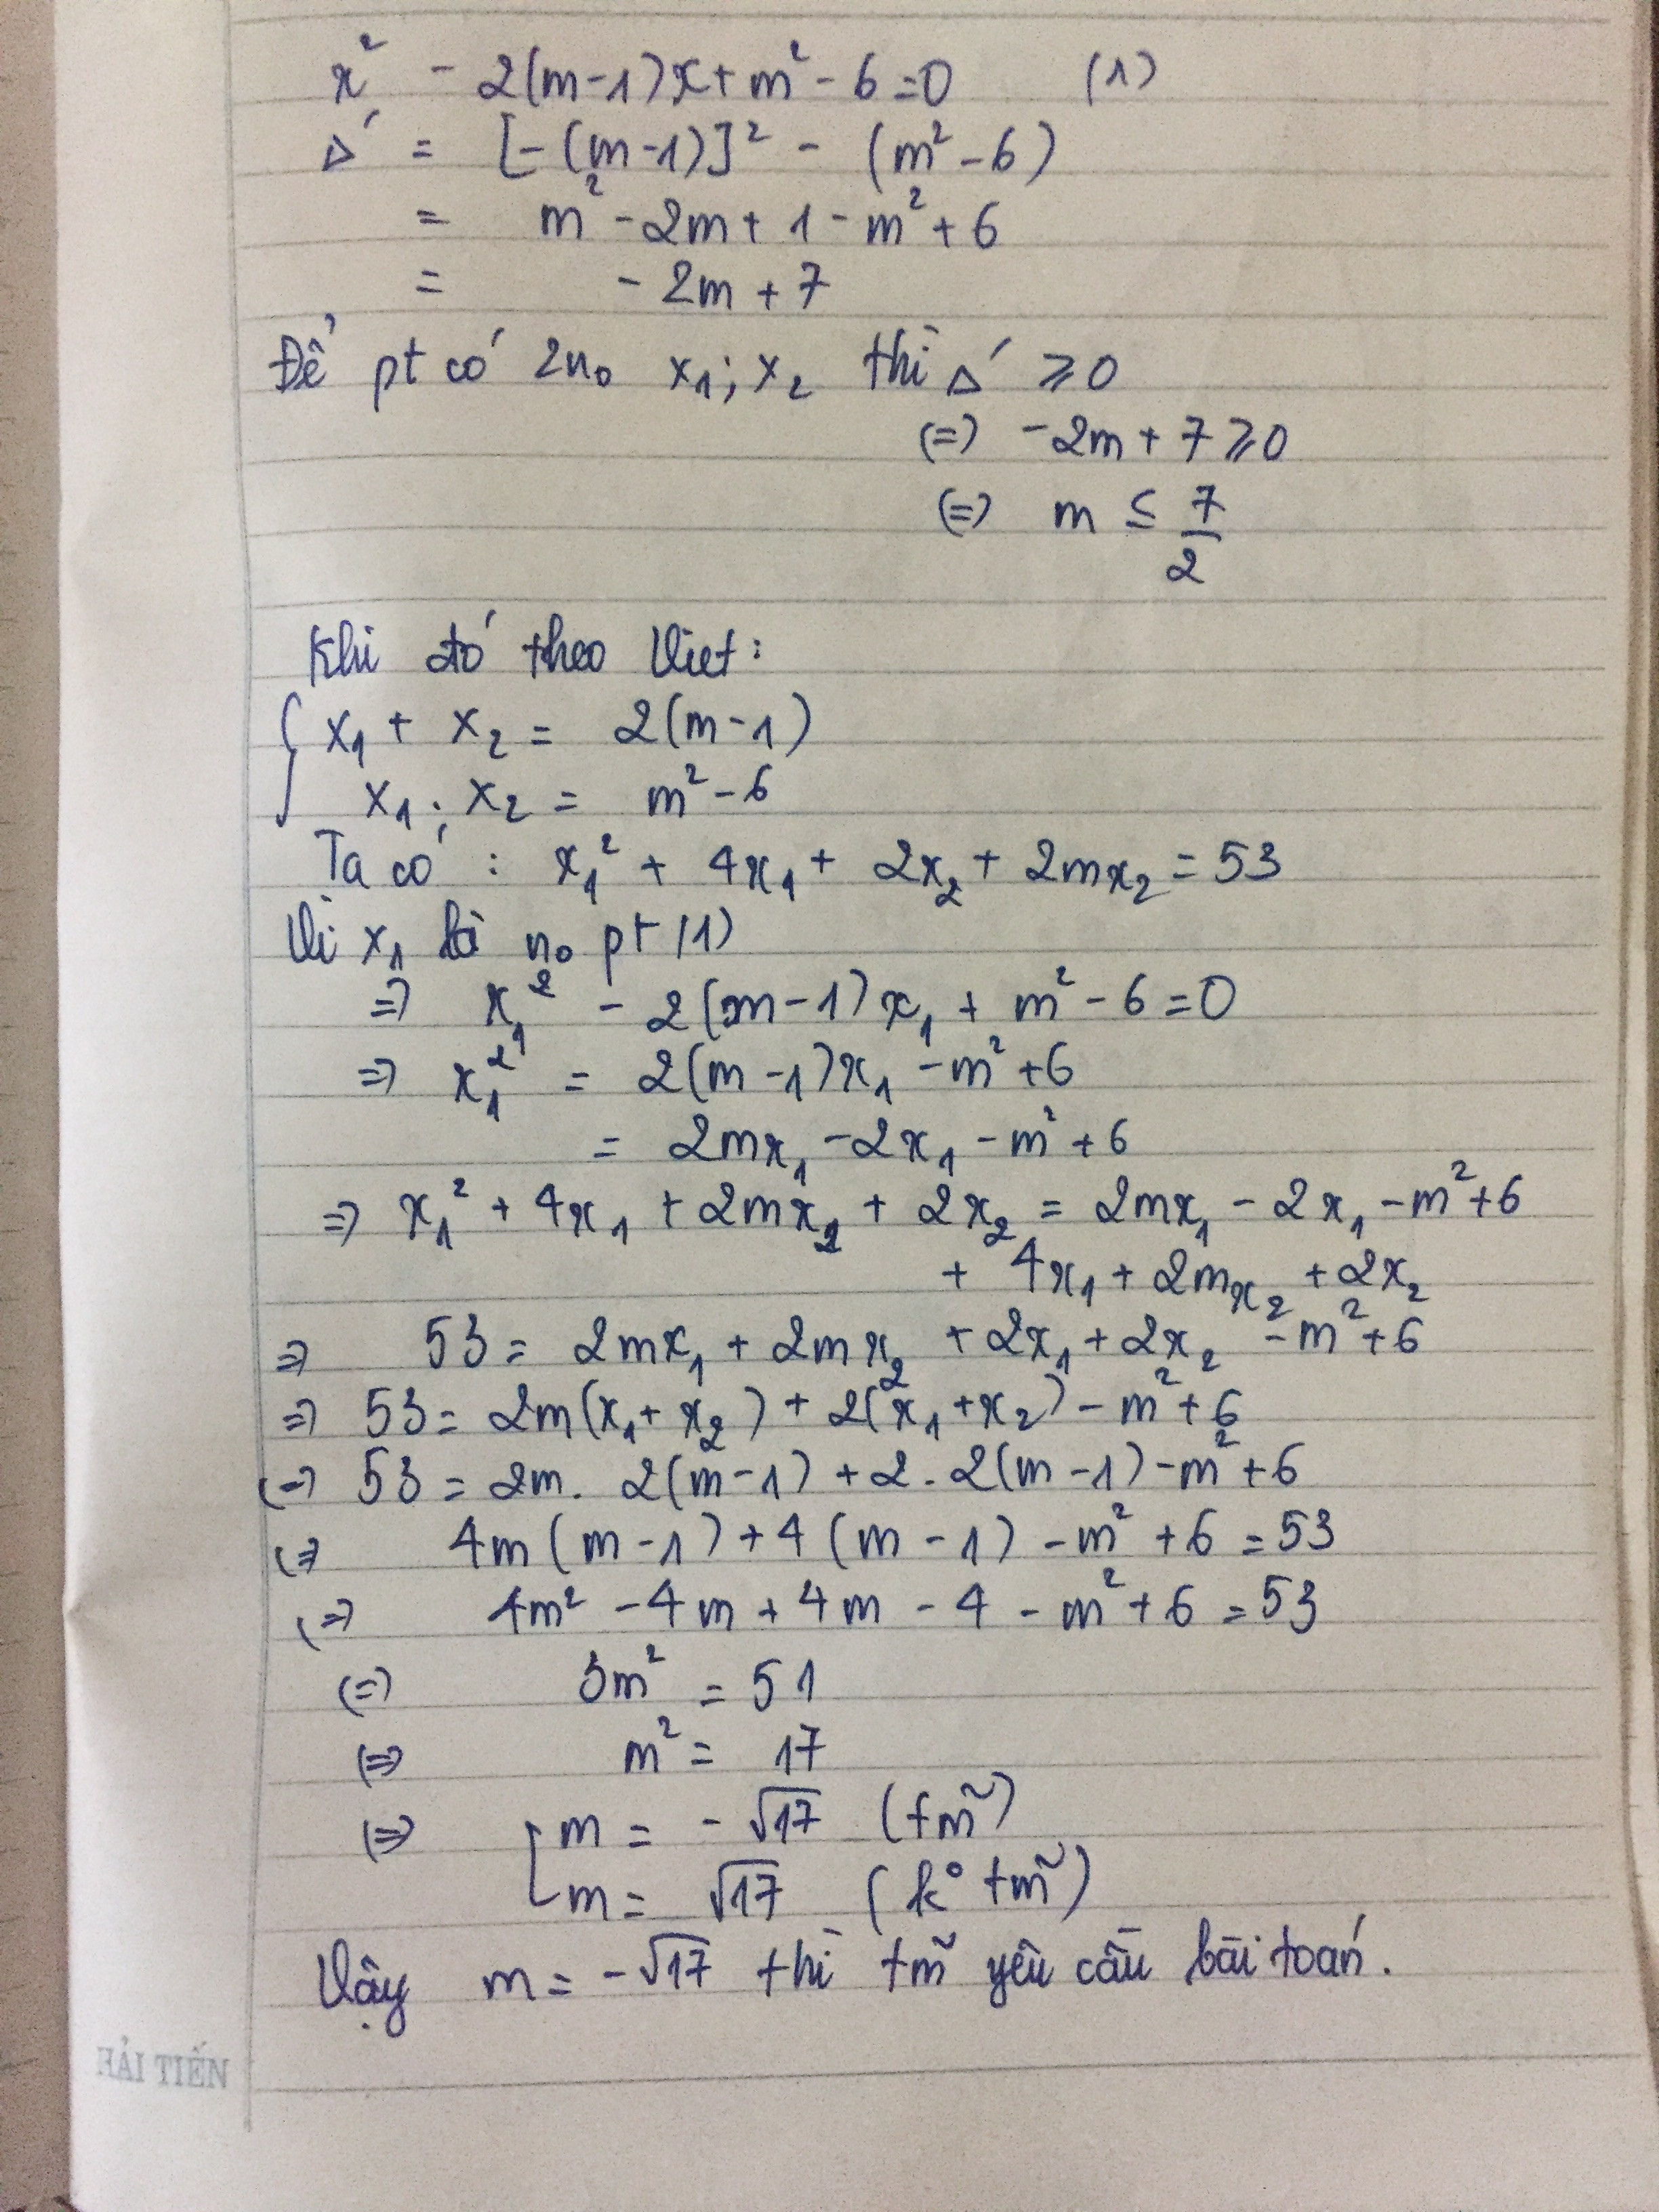 x² - 2(m-1)x + m² - 6 = 0 (1)
Δ' = [-(m-1)]² - (m² - 6)
= m² - 2m + 1 - m² + 6
= - 2m + 7
Để pt có 2 n₀ x₁; x₂ thì Δ' ⩾ 0
(=) -2m + 7 ⩾ 0
(=) m ≤ 7/2
Khi đó theo Viet:
{ x₁ + x₂ = 2(m-1)
x₁ . x₂ = m² - 6
Ta có : x₁² + 4x₁ + 2x₂ + 2mx₂ = 53
Vì x₁ là n₀ pt (1)
=) x₁² - 2(m-1)x₁ + m² - 6 = 0
=) x₁² = 2(m-1)x₁ - m² + 6
= 2mx₁ - 2x₁ - m² + 6
=) x₁² + 4x₁ + 2mx₂ + 2x₂ = 2mx₁ - 2x₁ - m² + 6
+ 4x₁ + 2mx₂ + 2x₂
=) 53 = 2mx₁ + 2mx₂ + 2x₁ + 2x₂ - m² + 6
=) 53 = 2m(x₁ + x₂) + 2(x₁ + x₂) - m² + 6
(=) 53 = 2m. 2(m-1) + 2. 2(m-1) - m² + 6
(=) 4m(m-1) + 4(m-1) - m² + 6 = 53
(=) 4m² - 4m + 4m - 4 - m² + 6 = 53
(=) 3m² = 51
(=) m² = 17
(=) [ m = -√17 (tm̃)
m = √17 (k° tm̃)
Vậy m = -√17 thì tm̃ yêu cầu bài toán.
HẢI TIẾN